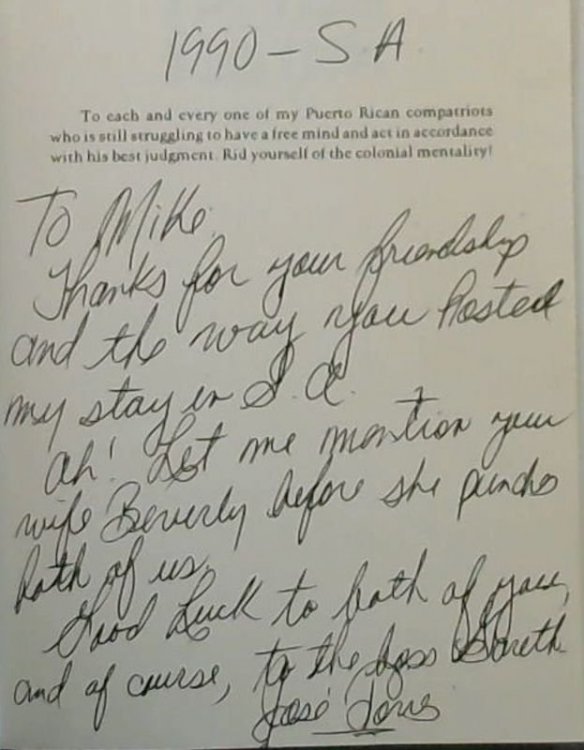 1990 - S A
To each and every one of my Puerto Rican compatriots
who is still struggling to have a free mind and act in accordance
with his best judgment. Rid yourself of the colonial mentality!
To Mike.
Thanks for your friendship
and the way you hosted
my stay in S. A.
Ah! Let me mention your
wife Beverly before she punches
both of us.
Good Luck to both of you,
and of course, to the boss Gareth
José Torres